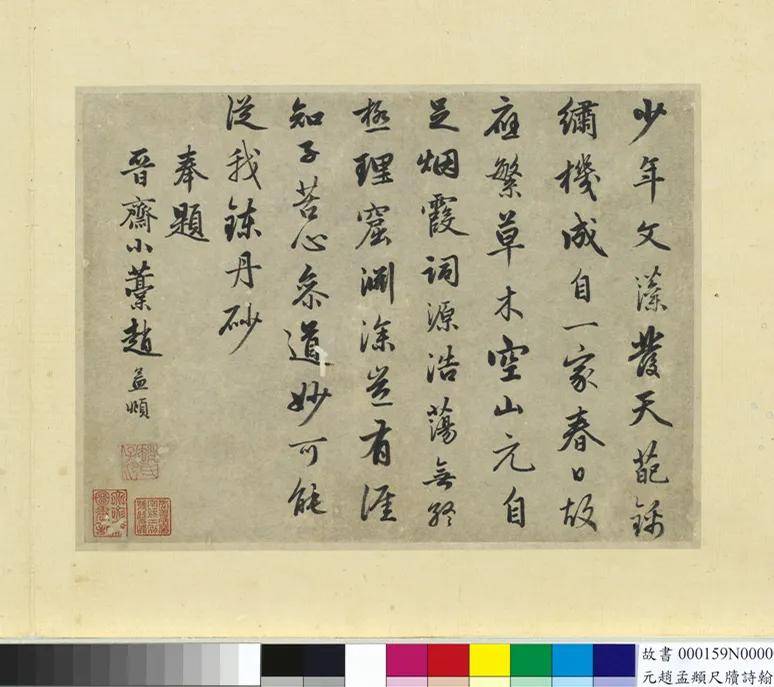 少年文藻發天葩錦
繡機成自一家春日故
應繁草木空山元自
足烟霞詞源浩蕩無終
極理窟淵深豈有涯
知子苦心參道妙可能
從我鍊丹砂
奉題
晉齋小藁趙孟頫
故書 000159N0000
元趙孟頫尺牘詩翰